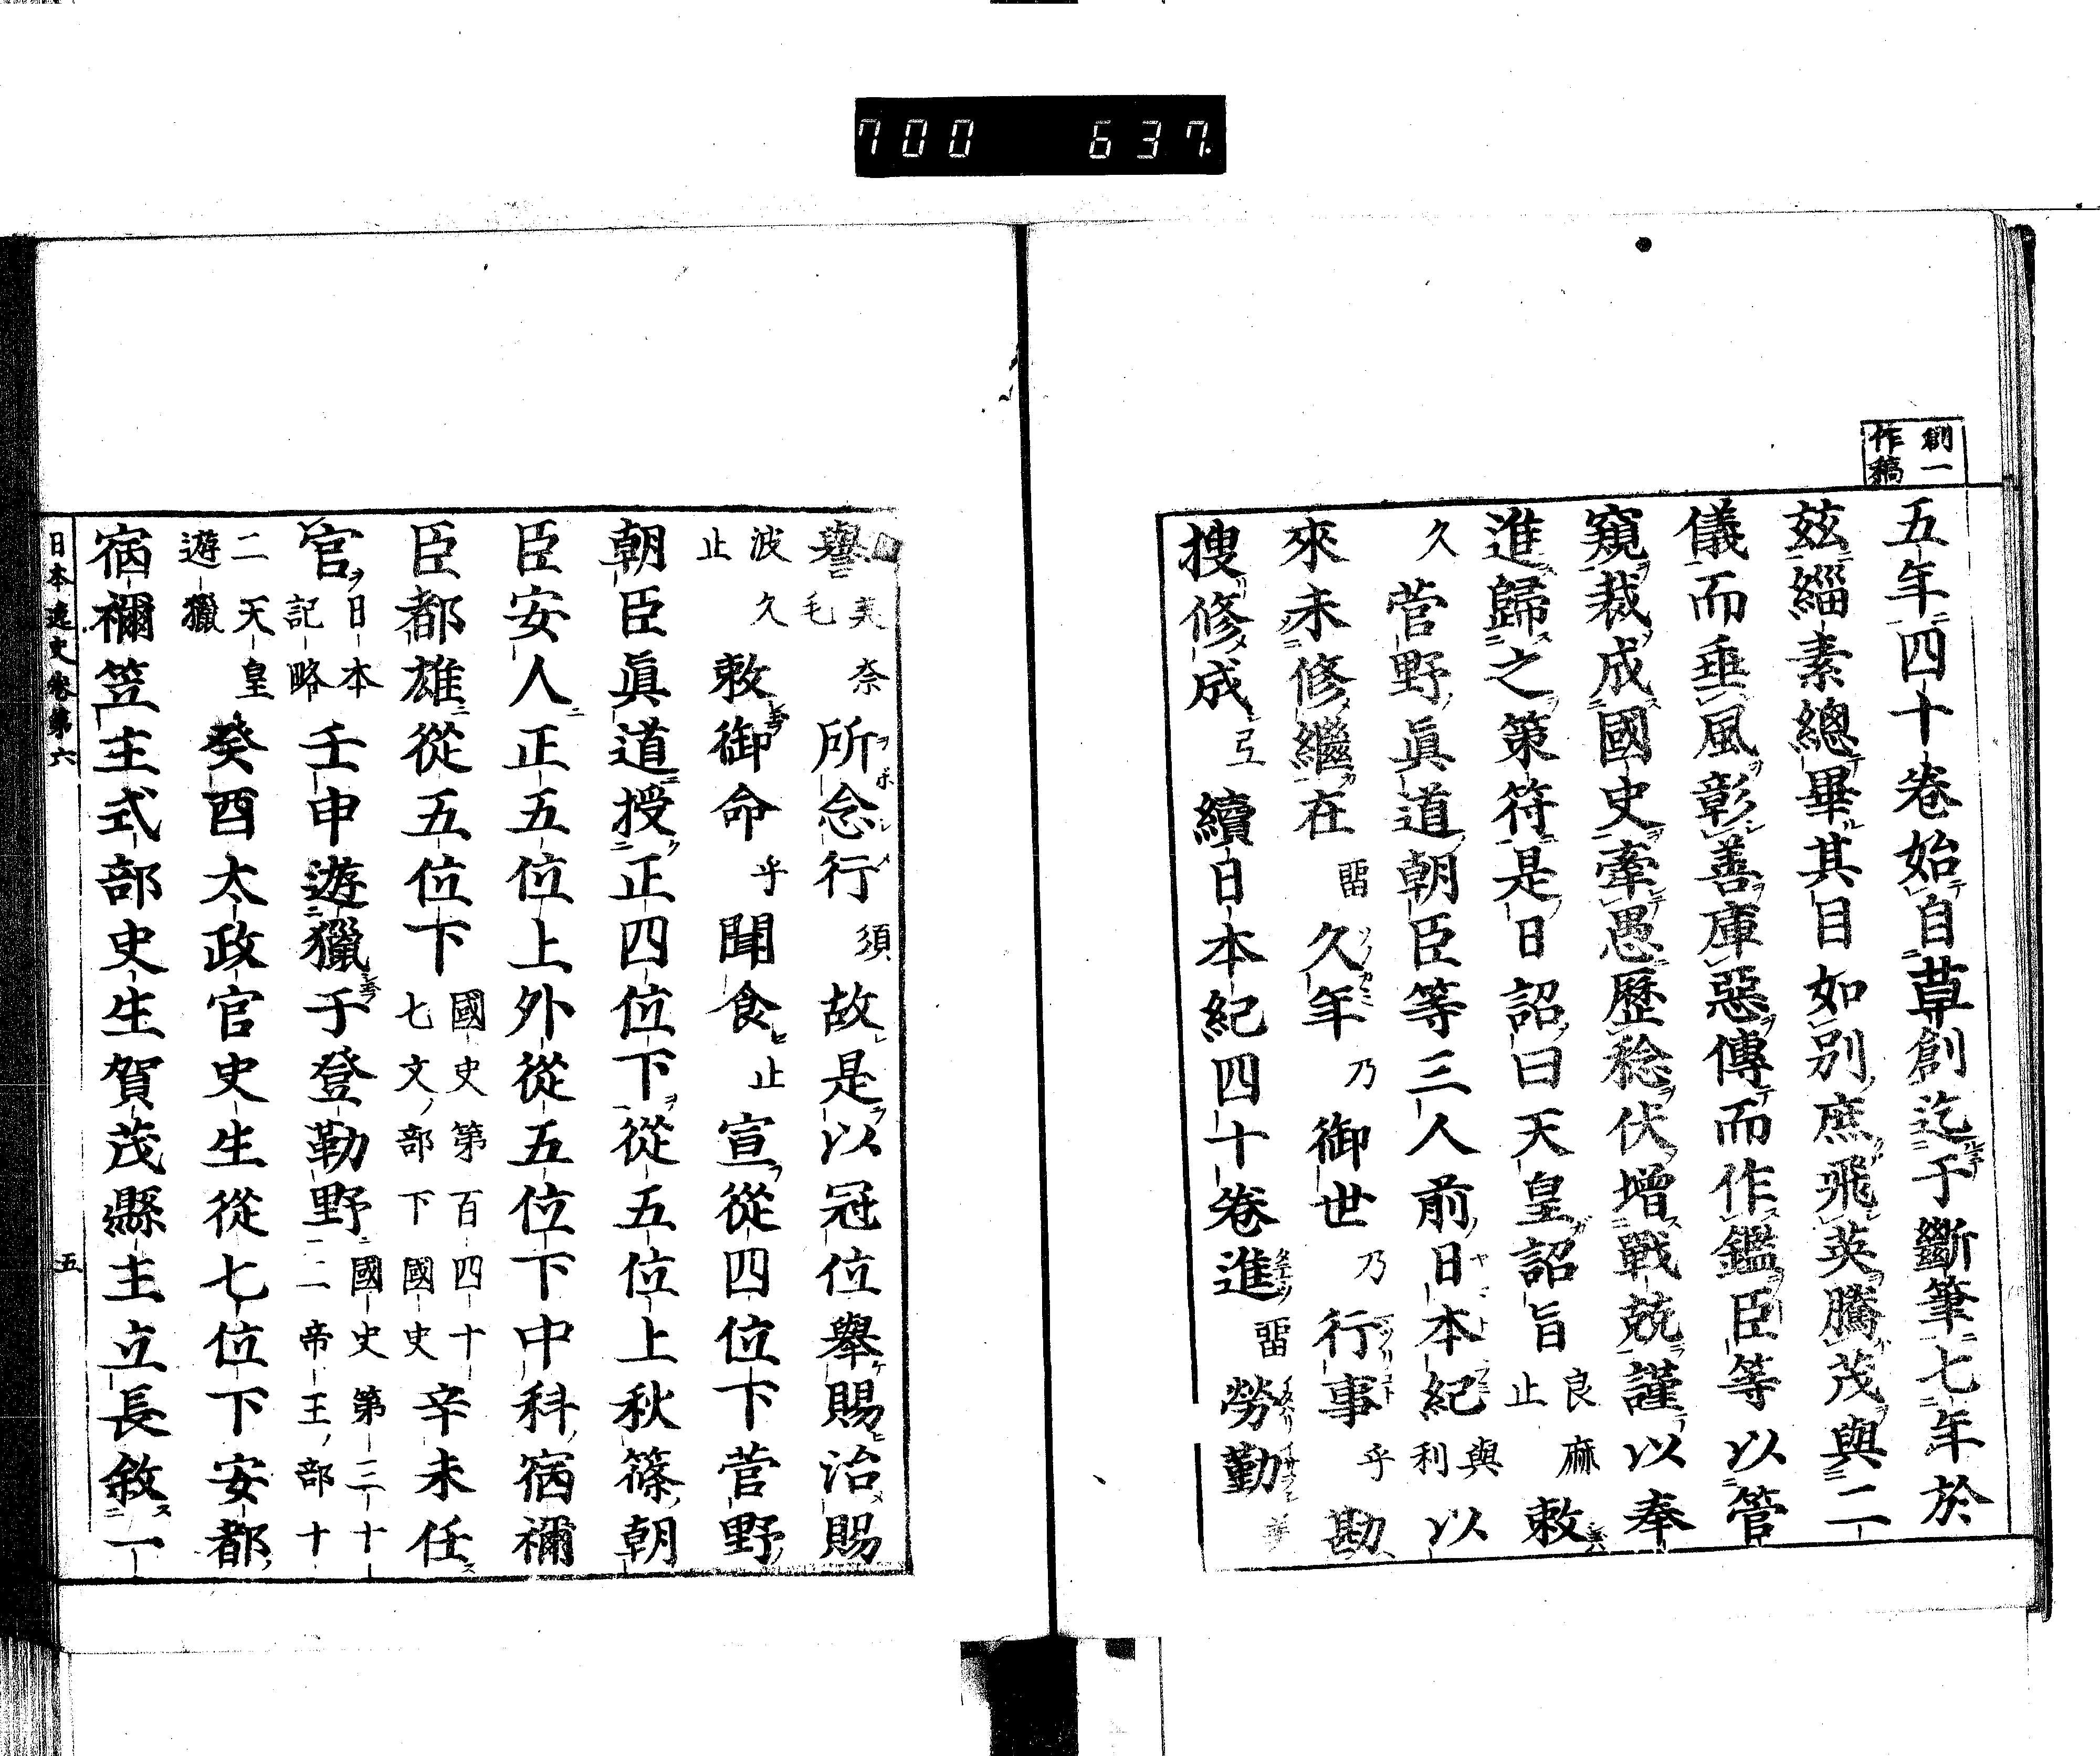 700 637
創一
作稿
五年四十卷始自草創迄于斷筆七年於
茲緇素總畢其目如別庶飛英騰茂與二
儀而垂風彰善癉惡傳而作鑑臣等以管
窺裁成國史牽愚歷稔伏増戰兢謹以奉
進歸之策符是日詔曰天皇詔旨良麻止敕
久菅野眞道朝臣等三人前日本紀與利以
來未修繼在畱久年乃御世乃行事乎勘
搜修成弖續日本紀四十卷進畱勞勤
譽美奈毛所念行須故是以冠位舉賜治賜
波久止敕御命乎聞食止宣從四位下菅野
朝臣眞道授正四位下從五位上秋篠朝
臣安人正五位上外從五位下中科宿禰
臣都雄從五位下國史第百四十七文部下國史辛未任
官日本記略壬申遊獵于登勒野國史第三十二帝王部十
二天皇遊獵癸酉太政官史生從七位下安都
宿禰笠主式部史生賀茂縣主立長敘一
日本逸史卷第六
五